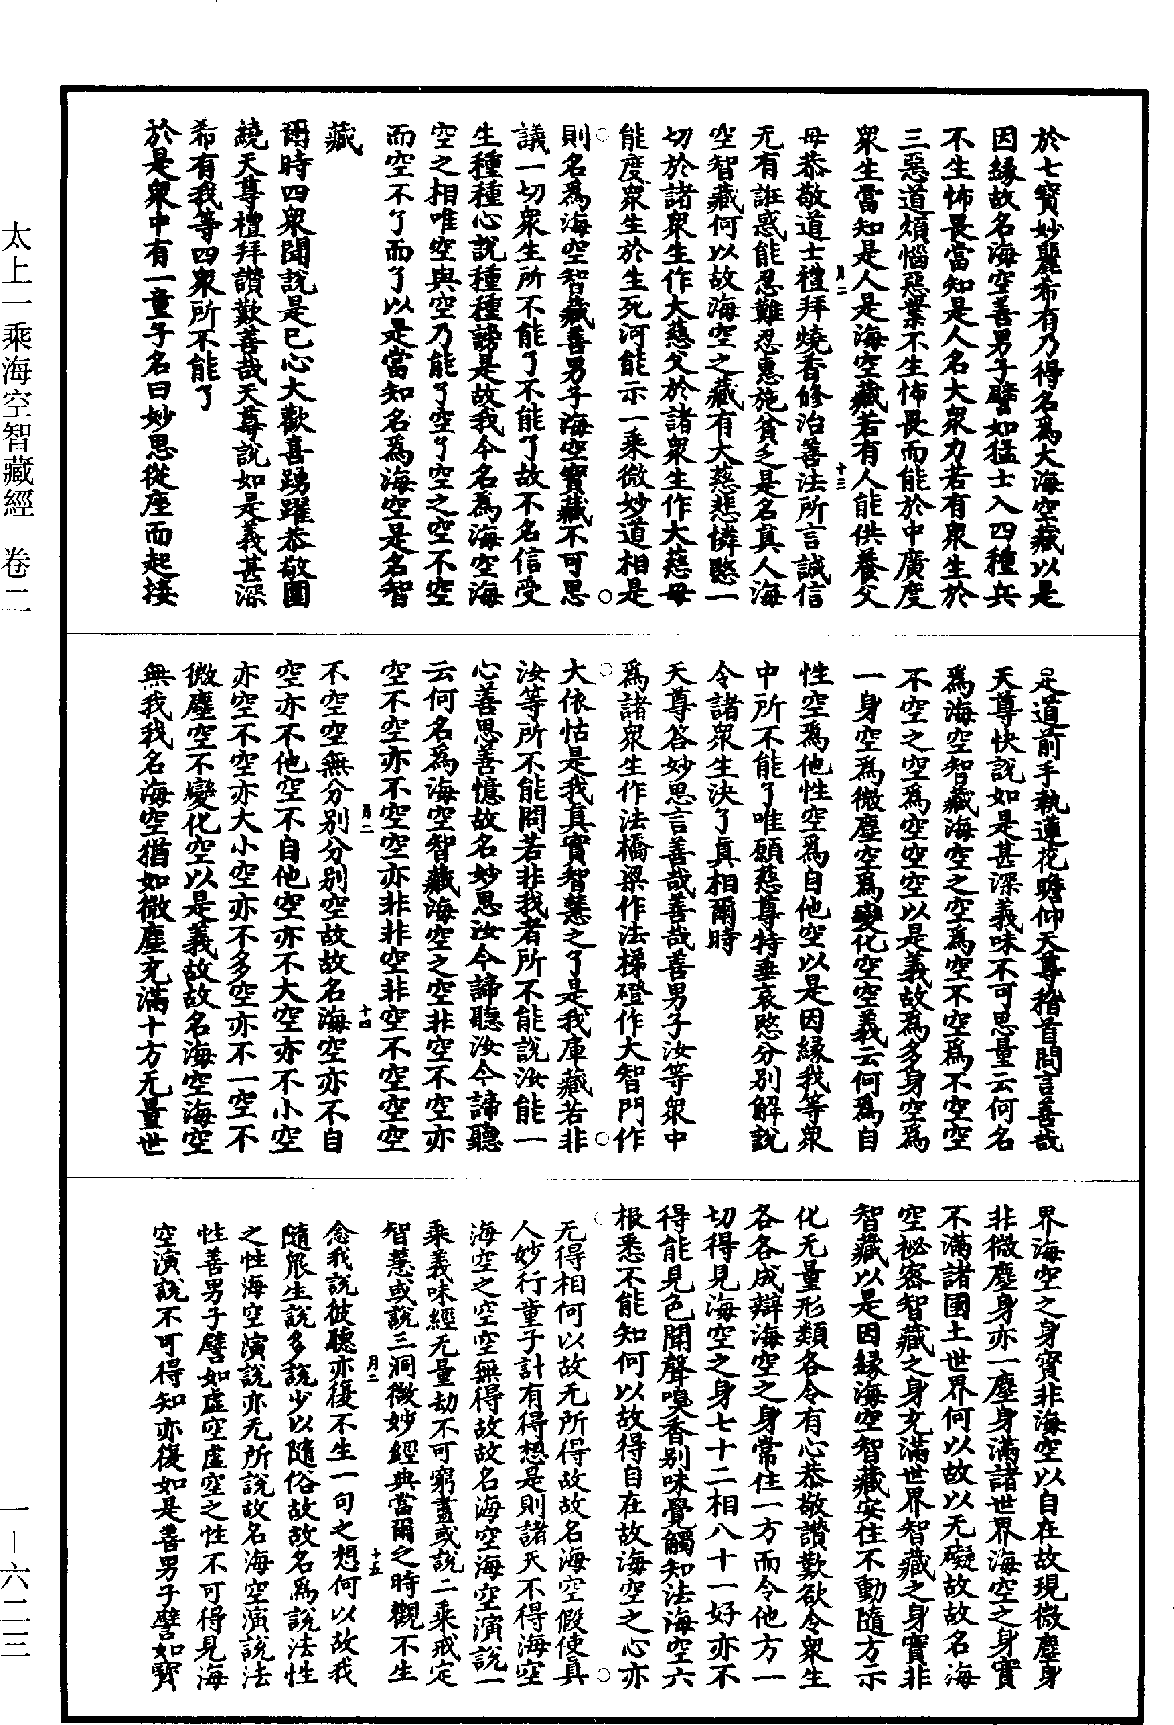 於七寶妙麗希有乃得名爲大海空藏以是
因緣故名海空善男子譬如猛士入四種兵
不生怖畏當知是人名大衆力若有衆生於
三惡道煩惱惡業不生怖畏而能於中廣度
衆生當知是人是海空藏若有人能供養父
母恭敬道士禮拜燒香修治善法所言誠信
无有誑惑能忍難忍惠施貧乏是名真人海
空智藏何以故海空之藏有大慈悲憐愍一
切於諸衆生作大慈父於諸衆生作大慈母
能度衆生於生死河能示一乘微妙道相是
則名爲海空智藏善男子海空寶藏不可思
議一切衆生所不能了不能了故不名信受
生種種心說種種謗是故我今名爲海空海
空之相唯空與空乃能了空了空之空不空
而空不了而了以是當知名爲海空是名智
藏
爾時四衆聞說是已心大歡喜踴躍恭敬圍
繞天尊禮拜讚歎善哉天尊說如是義甚深
希有我等四衆所不能了
於是衆中有一童子名曰妙思從座而起接
足道前手執蓮花瞻仰天尊稽首問言善哉
天尊快說如是甚深義味不可思量云何名
爲海空智藏海空之空爲空不空爲不空空
不空之空爲空空空以是義故爲多身空爲
一身空爲微塵空爲變化空空義云何爲自
性空爲他性空爲自他空以是因緣我等衆
中所不能了唯願慈尊特垂哀愍分別解說
令諸衆生決了真相爾時
天尊答妙思言善哉善哉善男子汝等衆中
爲諸衆生作法橋梁作法梯磴作大智門作
大依怙是我真實智慧之了是我庫藏若非
汝等所不能問若非我者所不能說汝能一
心善思善憶故名妙思汝今諦聽汝今諦聽
云何名爲海空智藏海空之空非空不空亦
空不空亦不空空亦非非空非空不空空空
不空空無分別分別空故故名海空亦不自
空亦不他空不自他空亦不大空亦不小空
亦空不空亦大小空亦不多空亦不一空不
微塵空不變化空以是義故故名海空海空
無我我名海空猶如微塵充滿十方无量世
界海空之身實非海空以自在故現微塵身
非微塵身亦一塵身滿諸世界海空之身實
不滿諸國土世界何以故以无礙故故名海
空祕密智藏之身充滿世界智藏之身實非
智藏以是因緣海空智藏安住不動隨方示
化无量形類各令有心恭敬讚歎欲令衆生
各各成辯海空之身常住一方而令他方一
切得見海空之身七十二相八十一好亦不
得能見色聞聲嗅香別味覺觸知法海空六
根悉不能知何以故得自在故海空之心亦
无得相何以故无所得故故名海空假使真
人妙行童子計有得想是則諸天不得海空
海空之空空無得故故名海空海空演說一
乘義味經无量劫不可窮盡或說二乘戒定
智慧或說三洞微妙經典當爾之時觀不生
念我說彼聽亦復不生一句之想何以故我
隨衆生說多說少以隨俗故故名爲說法性
之性海空演說亦无所說故名海空演說法
性善男子譬如虛空虛空之性不可得見海
空演說不可得知亦復如是善男子譬如寶
月二 十三
月二 十四
月二 十五
太上一乘海空智藏經 卷二
一—六二三